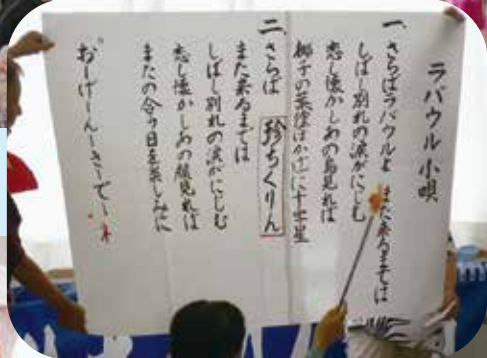 ラバウル小唄
一、さらばラバウルよ また来るまでは
しばし別れの涙がにじむ
恋し懐かしあの島見れば
椰子の葉 に十字星
二、さらば 珍ちくりん
また来るまでは
しばし別れの涙がにじむ
恋し懐かしあの顔見れば
またの合う日を楽しみに
おーげーんーきーでー